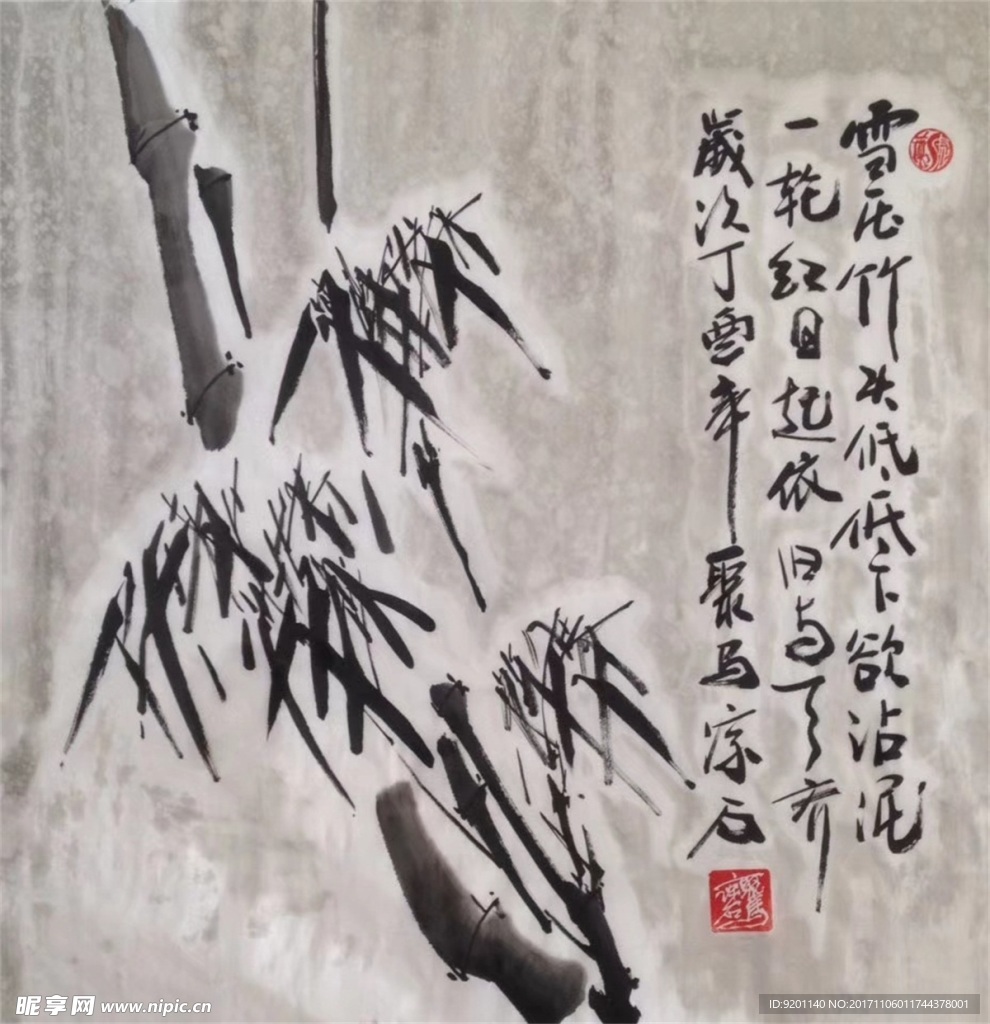 雪压竹头低低下欲沾泥
一轮红日起依旧与天齐
歲次丁酉年 聚马宗石
昵享网 www.nipic.cn
ID:9201140 NO:20171106011744378001